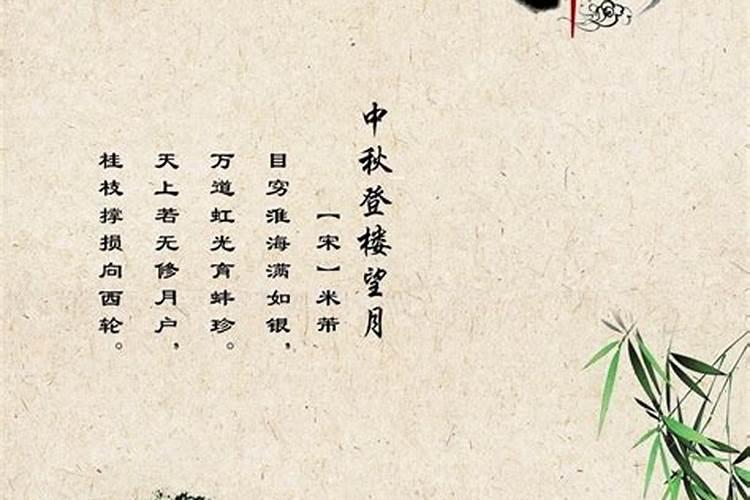 中秋登楼望月
【宋】米芾
目穷淮海满如银,
万道虹光育蚌珍。
天上若无修月户,
桂枝撑损向西轮。